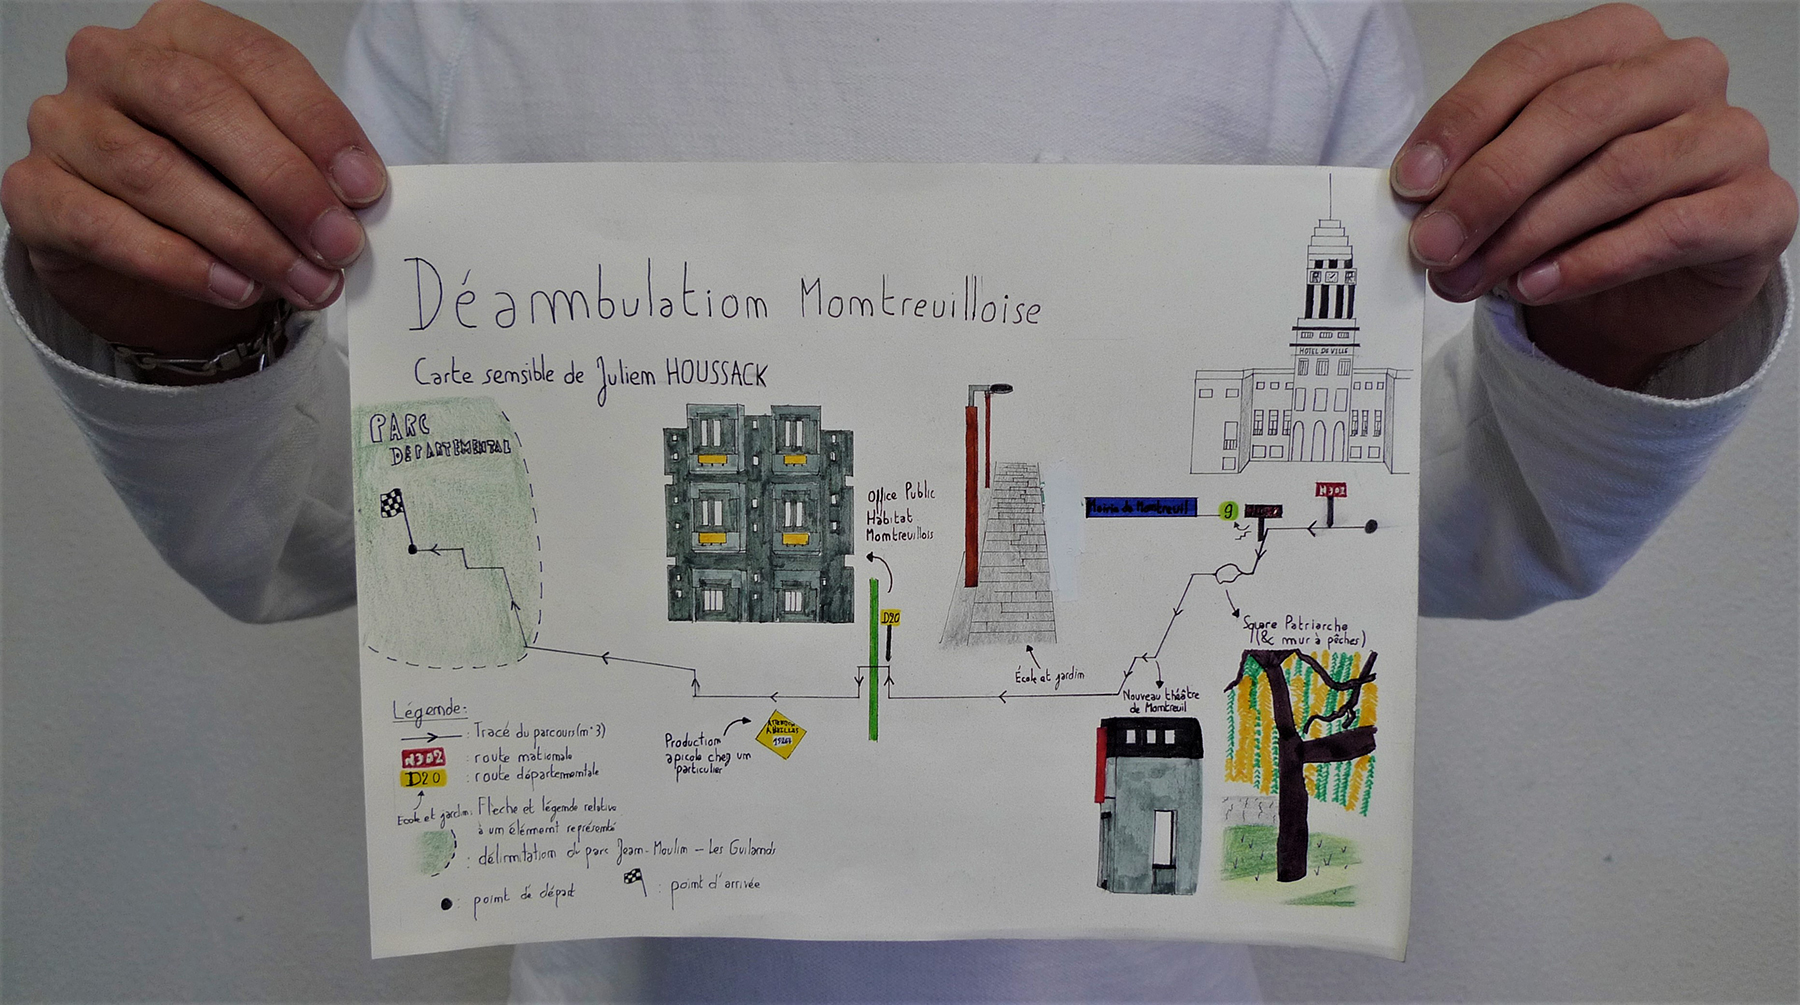 Déambulation Montreuilloise
Carte sensible de Julien HOUSSACK
PARC
DÉPARTEMENTAL
Office Public
Habitat
Montreuillois
D20
École et jardin
HOTEL DE VILLE
Mairie de Montreuil
9
N302
Square Patriarche
(& mur à pêches)
Nouveau théâtre
de Montreuil
Production
apicole chez un
particulier
ATTENTION
ABEILLES
Légende:
: Tracé du parcours (n°3)
N302 : route nationale
D20 : route départementale
Ecole et jardin : Flèche et légende relative
à un élément représenté
: délimitation du parc Jean-Moulin – Les Guilands
: point de départ
: point d'arrivée